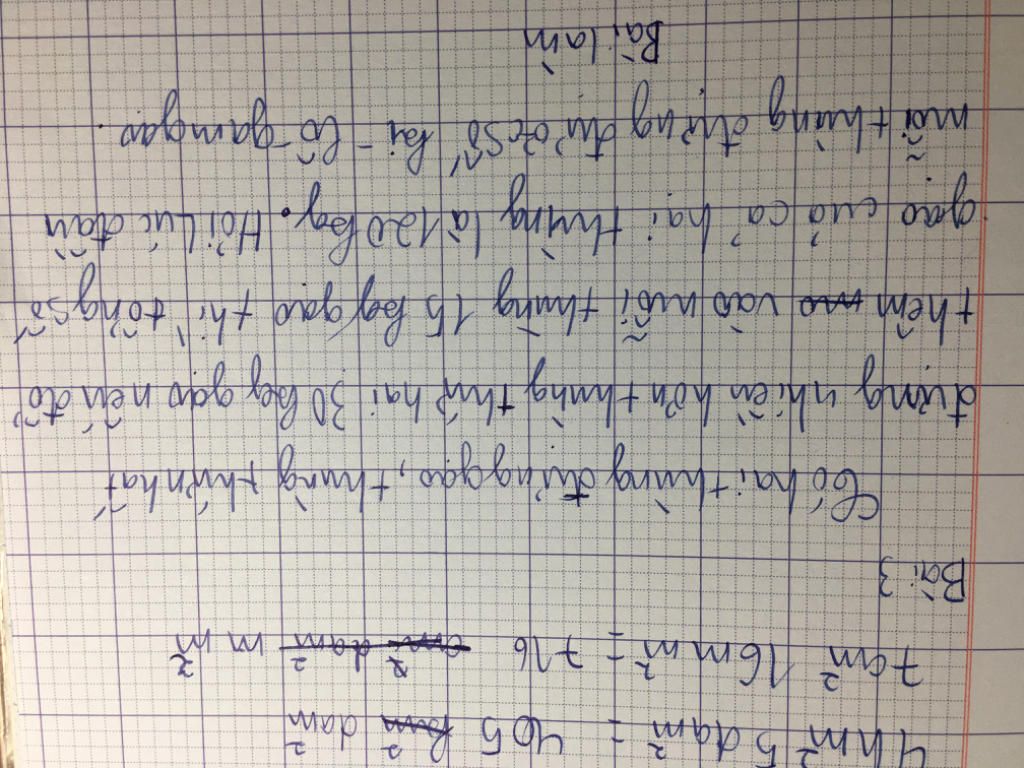 4hm² 5dam² = 405 dam²
7cm² 16mm² = 716 mm²
Bài 3
Có hai thùng đựng gạo, thùng thứ nhất
đựng nhiền hơn thùng thứ hai 30kg gạo nến đổ
thêm vào mỗi thùng 15kg gạo thì tổng số
gạo cuả cả hai thùng là 120kg. Hỏi Lúc đầu
mỗi thùng đựng được số ki-lô-gam gạo.
Bài làm